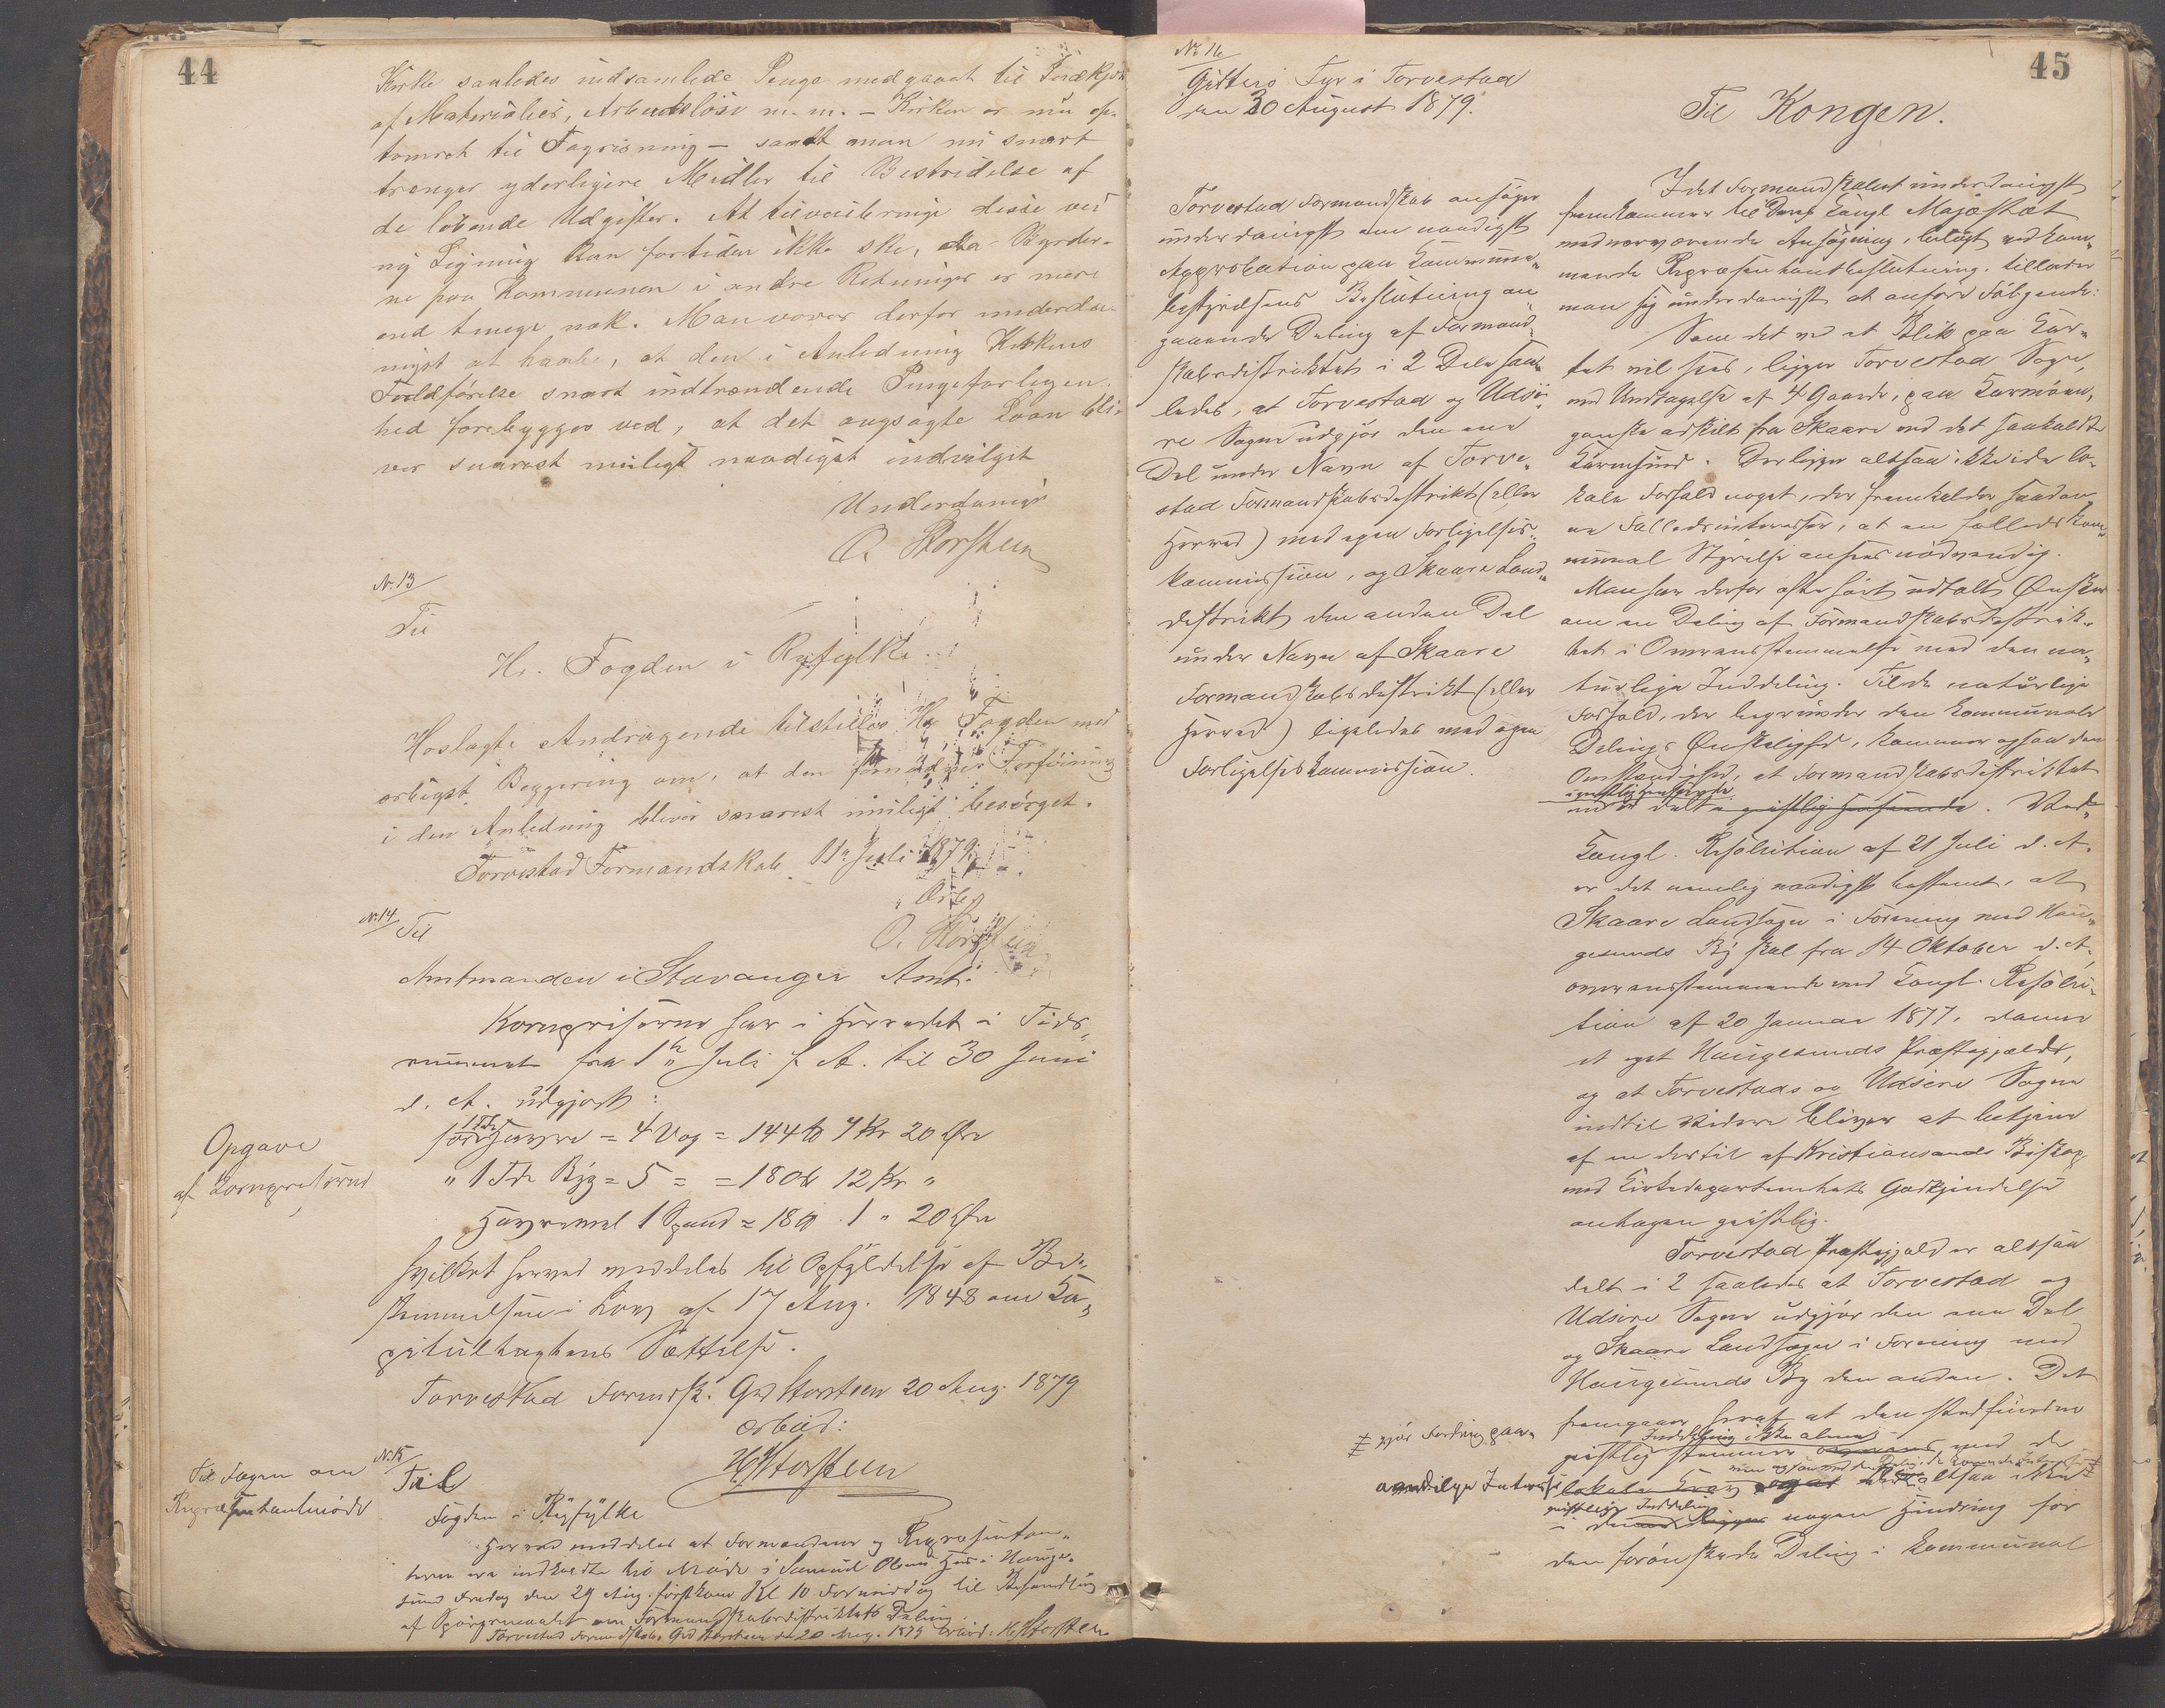 44
Kirke saaledes indsamlede Penge medgaaet til Indkjøb
af Materialier, Arbeidsløn m. m. – Kirken er nu op-
tømret til Tagrisning – samt man nu snart
trænger yderligere Midler til Bestridelse af
de løbende Udgifter. At tilveiebringe disse ved
ny Ligning kan fortiden ikke ske, da Byrder-
ne paa Kommunen i andre Retninger er mere
end tunge nok. Man vover derfor underda-
nigst at haabe, at den i Anledning Kirkens
Fuldførelse snart indtrædende Pengeforlegen-
hed forebygges ved, at det ansøgte Laan bli-
ver snarest muligt naadigst indvilget
Underdanigst
O. Storsteen
No. 13
Til
Hr. Fogden i Ryfylke
Hoslagte Andragende tilstilles Hr. Fogden med
ærbigst Begjering om, at den fornødne Forføining
i den Anledning bliver snarest muligt besørget.
Torvestad Formandskab 11te Juli 1879.
Ærb.
O. Storsteen
No. 14
Til
Amtmanden i Stavanger Amt.
Opgave
af Kornpriserne
Kornpriserne har i Herredet i Tids-
rummet fra 1te Juli f. A. til 30 Juni
d. A. udgjort:
for 1 Tde Havre = 4 Vog = 144 ℔ 7 Kr 20 Øre
" 1 Tde Byg = 5 = = 180 ℔ 12 Kr "
Havremel 1 Spand = 18 ℔ 1 " 20 Øre
hvilket herved meddeles til Opfyldelse af Be-
stemmelsen i Lov af 17 Aug. 1848 om Ka-
pitultaxtens Sættelse.
Torvestad Formsk. Grd Storsteen 20 Aug. 1879
Ærbød:
H Storsteen
No. 15
Til Fogden om
Repræsentantmøde
Til
Fogden i Ryfylke
Herved meddeles at Formændene og Repræsentan-
terne ere indkaldte til Møde i Samuel Olsens Hus i Hauge-
sund Fredag den 29 Aug. førstkom. Kl 10 Formiddag til Behandling
af Spørgsmaalet om Formandskabsdistriktets Deling.
Torvestad Formandskab, Grd Storsteen den 20 Aug. 1879 Ærbød: H Storsteen
45
No. 16
Gitterø Fyr i Torvestad
den 30 August 1879.
Torvestad Formandskab ansøger
underdanigst om naadigst
Approbation paa Kommune-
bestyrelsens Beslutning an-
gaaende Deling af Formand-
skabsdistriktet i 2 Dele saa-
ledes, at Torvestad og Udsi-
re Sogne udgjør den ene
Del under Navn af Torve-
stad Formandskabsdistrikt (eller
Herred) med egen Forligelses-
kommission, og Skaare Land-
distrikt den anden Del
under Navn af Skaare
Formandskabsdistrikt (eller
Herred) ligeledes med egen
Forligelseskommission.
Til Kongen.
Idet Formandskabet underdanigst
fremkommer til Deres Kongl Majestæt
med nærværende Ansøgning, belagt vedkom-
mende Repræsentantbeslutning, tillader
man sig underdanigst at anføre Følgende:
Som det ved et Blik paa Kar-
tet vil sees, ligger Torvestad Sogn,
med Undtagelse af 4 Gaarde, paa Karmøen,
ganske adskilt fra Skaare ved det saakaldte
Karmsund. Der ligger altsaa ikke i de lo-
kale Forhold noget, der fremkalder saadan-
ne Fællesinteresser, at en fælleds kom-
munal Styrelse ansees nødvendig.
Man har derfor ofte hørt udtalt Ønsker
om en Deling af Formandskabsdistrik-
tet i Overensstemmelse med den na-
turlige Inddeling. Til de naturlige
Forhold, der begrunder den kommunale
Delings Ønskelighed, kommer ogsaa den
Omstændighed, at Formandskabsdistriktet
i geistlig Henseende
nu er delt i geistlig Henseende. Ved
Kongl. Resolution af 21 Juli d. A.
er det nemlig naadigst bestemt, at
Skaare Landsogn i Forening med Hau-
gesunds By skal fra 14 Oktober d. A.
overensstemmende med Kongl. Resolu-
tion af 20 Januar 1877, danne
et eget Haugesunds Præstegjeld,
og at Torvestads og Udsire Sogne
indtil videre bliver at betjene
af en dertil af Kristiansands Biskop
med Kirkedepartementets Godkjendelse
antagen geistlig.
Torvestad Præstegjeld er altsaa
delt i 2 saaledes at Torvestad og
Udsire Sogne udgjør den ene Del
og Skaare Landsogn i Forening med
Haugesunds By den anden. Det
fremgaar heraf at den stedfundne
Inddeling ikke alene
geistlig stemmer med de
‡ gjør Fordring paa
aandelige Interesse
lokale Krav altsaa ikke
geistlige Inddeling
i nogen Hindring for
den forønskede Deling i kommunal